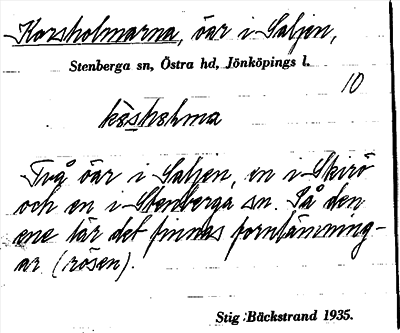 Korsholmarna, öar i Saljen,
Stenberga sn, Östra hd, Jönköpings l.
10
Två öar i Saljen, en i Skirö
och en i Stenberga sn. På den
ene lär det finnas fornlämning-
ar (rösen).
Stig Bäckstrand 1935.